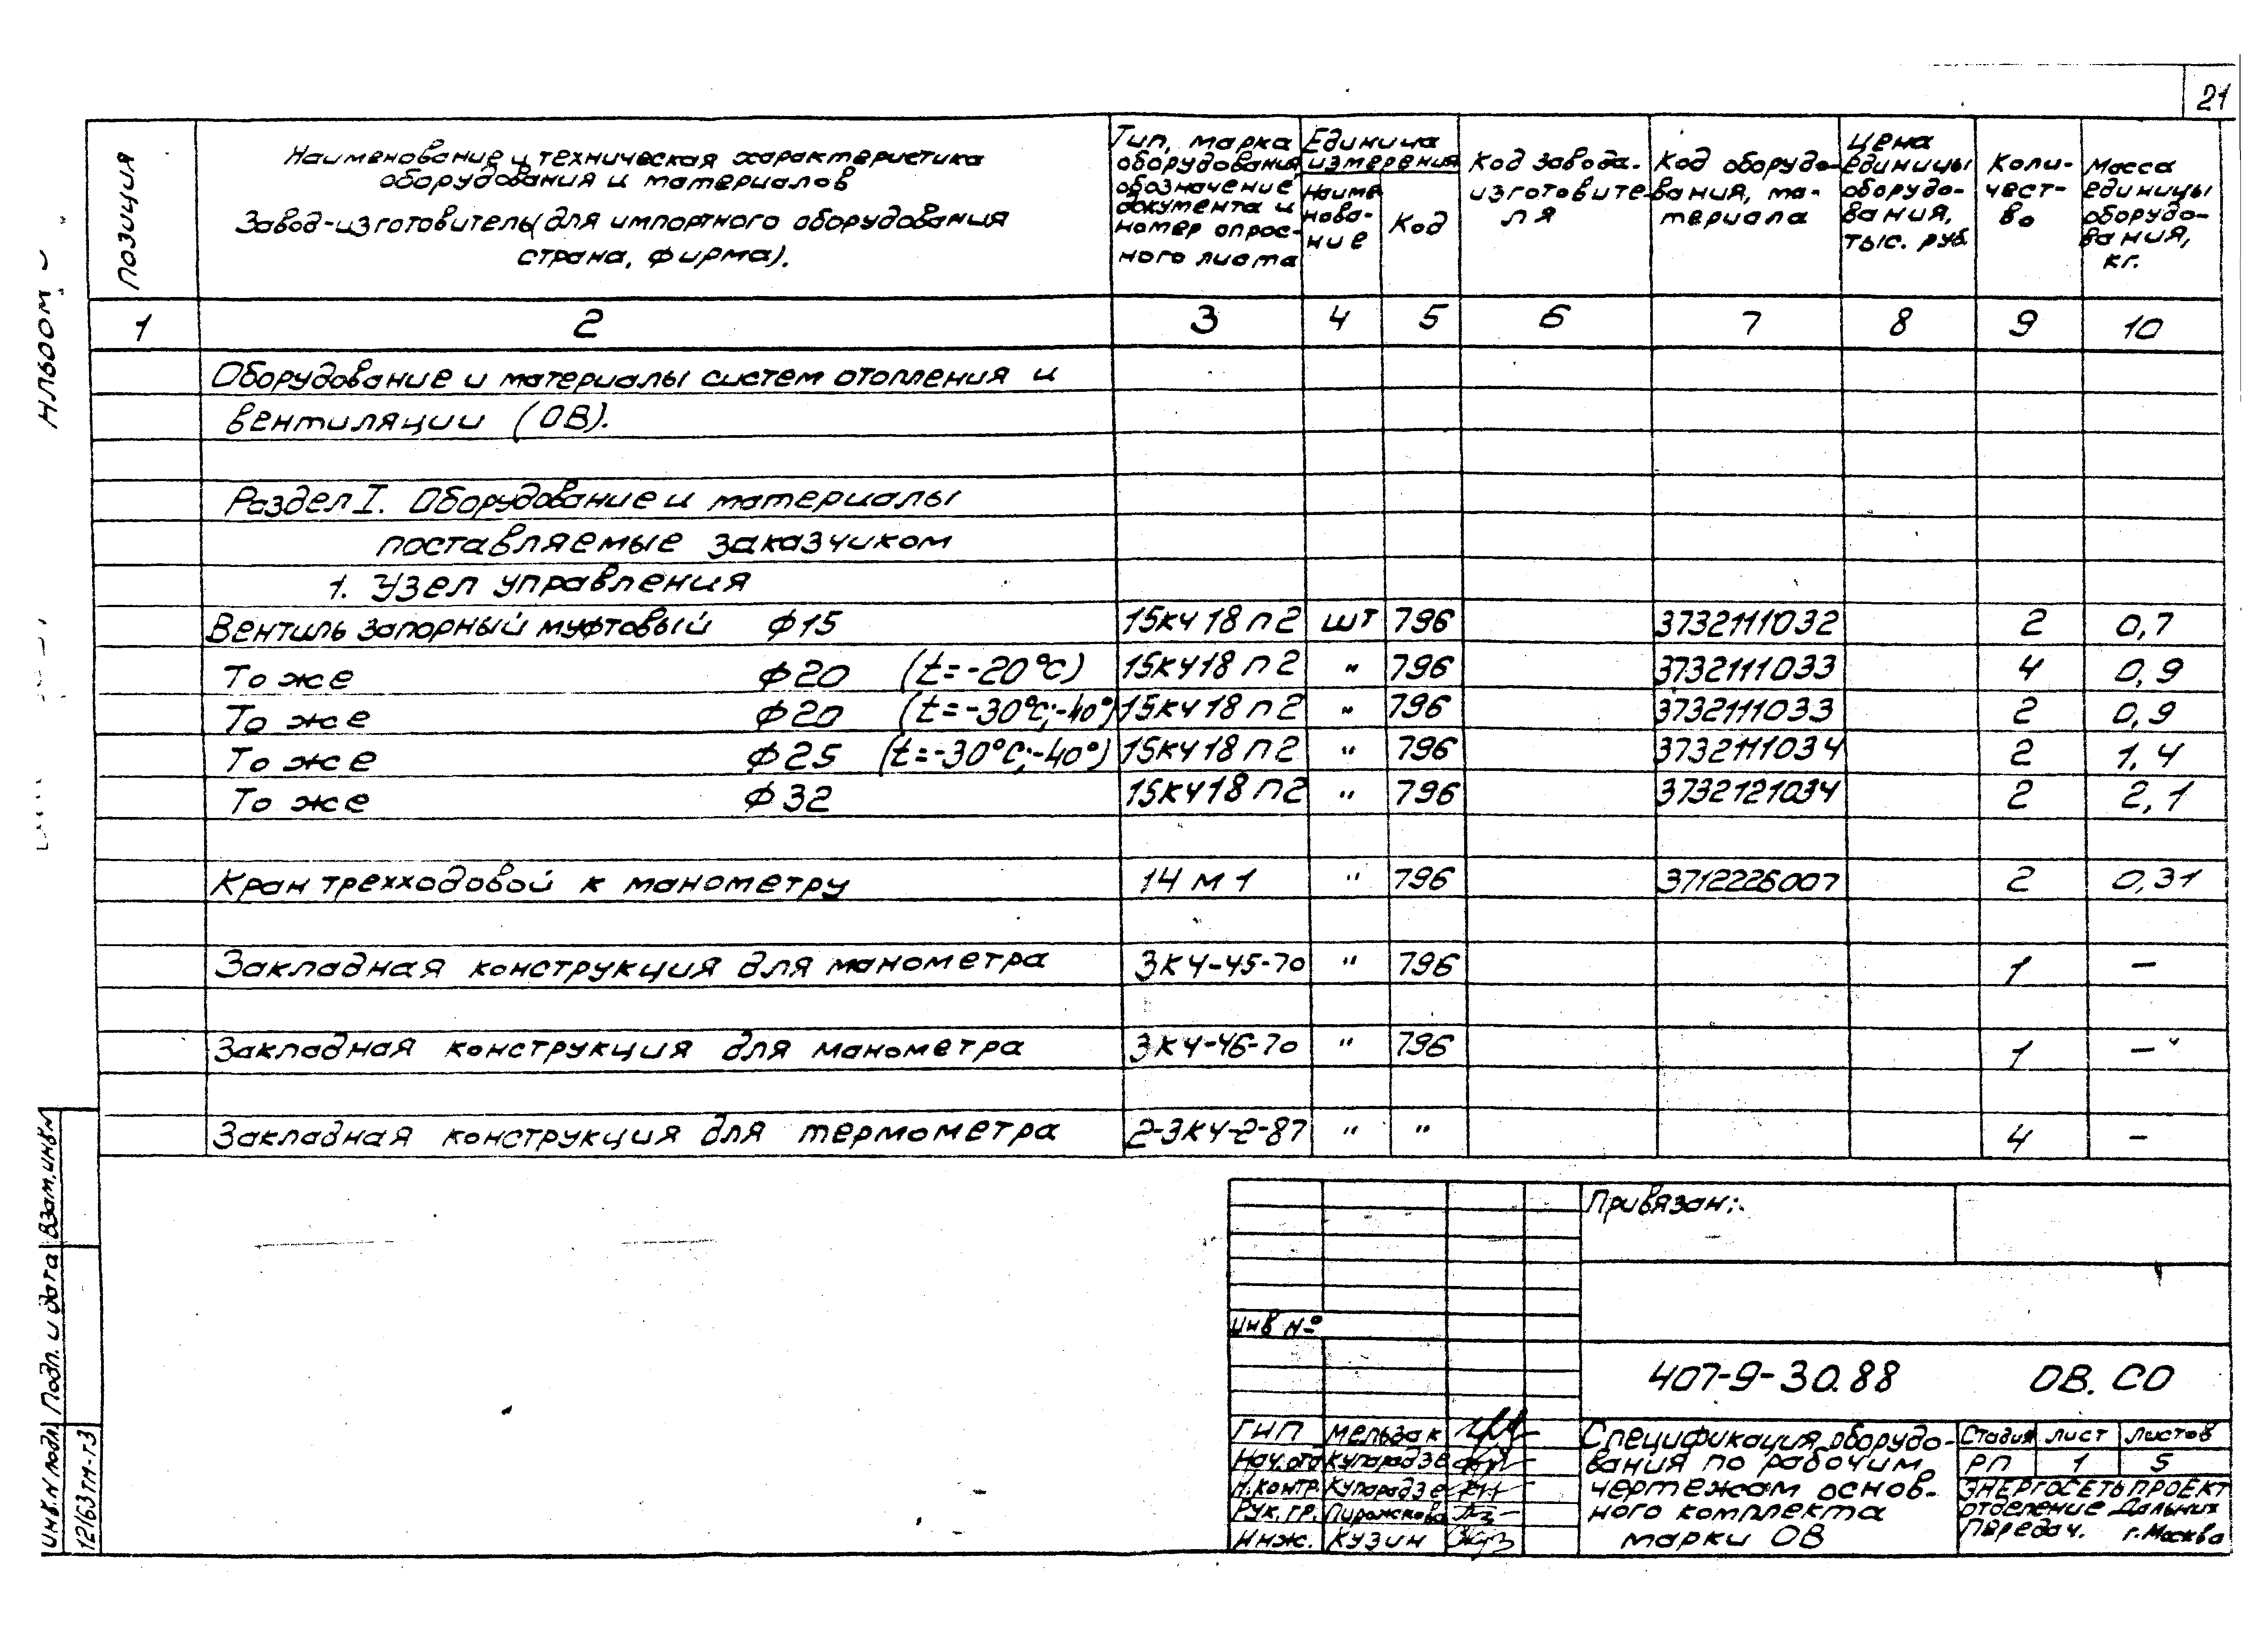 21
Позиция
Наименование и техническая характеристика
оборудования и материалов
Завод-изготовитель (для импортного оборудования
страна, фирма).
Тип, марка
оборудования,
обозначение
документа и
номер опрос-
ного листа
Единица
измерения
Наиме
нова-
ние
Код
Код завода-
изготовите-
ля
Код оборудо-
вания, ма-
териала
Цена
единицы
оборудо-
вания,
тыс. руб.
Коли-
чест-
во
Масса
единицы
оборудо-
вания,
кг.
1 2 3 4 5 6 7 8 9 10
Оборудование и материалы систем отопления и
вентиляции (ОВ).
Раздел I. Оборудование и материалы
поставляемые заказчиком
1. Узел управления
Вентиль запорный муфтовый ф15 15кч18п2 шт 796 3732111032 2 0,7
То же ф20 (t=-20°С) 15кч18п2 " 796 3732111033 4 0,9
То же ф20 (t=-30°С;-40°) 15кч18п2 " 796 3732111033 2 0,9
То же ф25 (t=-30°С;-40°) 15кч18п2 " 796 3732111034 2 1,4
То же ф32 15кч18п2 " 796 3732121034 2 2,1
Кран трехходовой к манометру 14М1 " 796 3712226007 2 0,31
Закладная конструкция для манометра ЗК4-45-70 " 796 1 —
Закладная конструкция для манометра ЗК4-46-70 " 796 1 —
Закладная конструкция для термометра 2-ЗК4-2-87 " " 4 —
Альбом
Взам.инв.N
Подп. и дата
Инв.N подл.
12163тм-т3
Привязан:
Инв №
407-9-30.88 ОВ. СО
ГИП Мельзак
Нач.отд Купарадзе
Н.контр. Купарадзе
Рук.гр. Пирожкова
Инж. Кузин
Спецификация оборудо-
вания по рабочим
чертежам основ-
ного комплекта
марки ОВ
Стадия Лист Листов
РП 1 5
ЭНЕРГОСЕТЬПРОЕКТ
Отделение Дальних
Передач. г.Москва